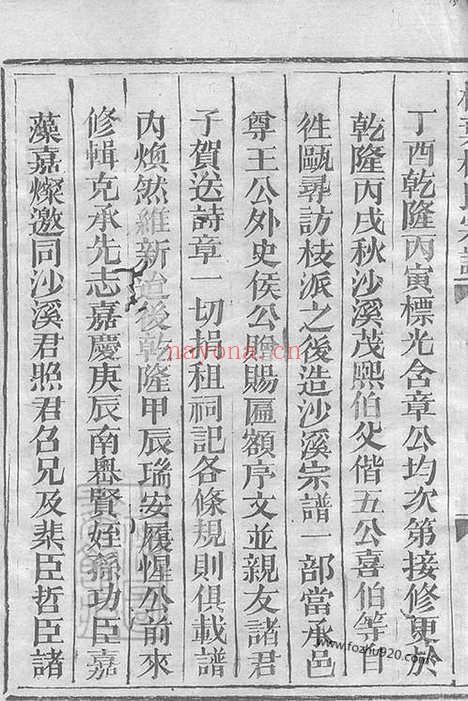 丁酉乾隆丙寅標光含章公均次第接修更於
乾隆丙戌秋沙溪茂熙伯父偕五公喜伯等自
徃甌尋訪枝派之後造沙溪宗譜一部當承邑
尊王公外史侯公贈賜匾額序文並親友諸君
子賀送詩章一切捐租祠記各條規則俱載譜
內煥然維新迨後乾隆甲辰瑞安履惺公前來
修輯克承先志嘉慶庚辰南嶴賢姪孫功臣嘉
藻嘉燦邀同沙溪君照君召兄及棐臣哲臣諸
nayona.cn
www.fozhu920.com